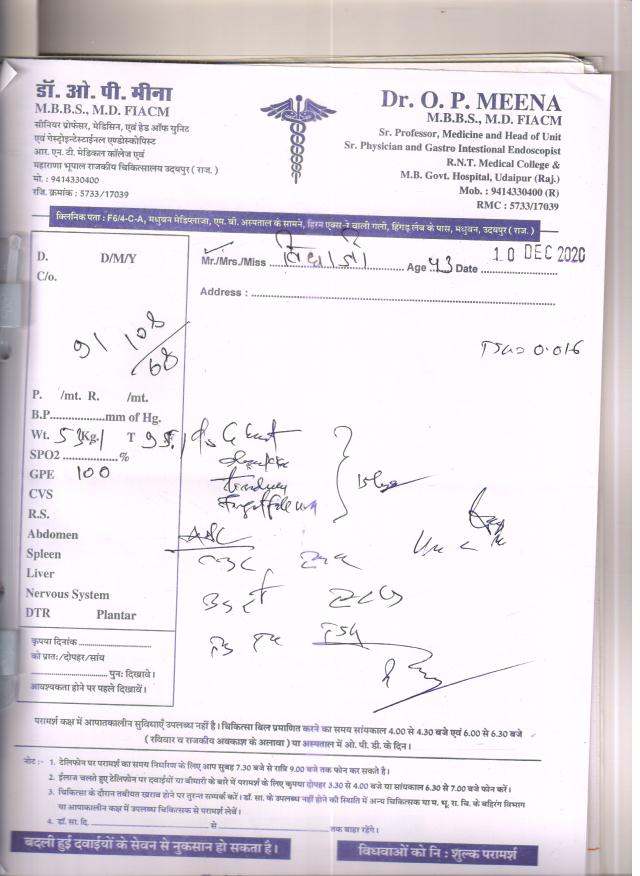 डॉ. ओ. पी. मीना
M.B.B.S., M.D. FIACM
सीनियर प्रोफेसर, मेडिसिन, एवं हेड ऑफ युनिट
एवं गेस्ट्रोइन्टेस्टाईनल एण्डोस्कोपिस्ट
आर. एन. टी. मेडिकल कॉलेज एवं
महाराणा भूपाल राजकीय चिकित्सालय उदयपुर ( राज. )
मो. : 9414330400
रजि. क्रमांक : 5733/17039
Dr. O. P. MEENA
M.B.B.S., M.D. FIACM
Sr. Professor, Medicine and Head of Unit
Sr. Physician and Gastro Intestional Endoscopist
R.N.T. Medical College &
M.B. Govt. Hospital, Udaipur (Raj.)
Mob. : 9414330400 (R)
RMC : 5733/17039
क्लिनिक पता : F6/4-C-A, मधुवन मेडिप्लाजा, एम. बी. अस्पताल के सामने, हिरन एक्स-रे वाली गली, हिंगड़ लेब के पास, मधुवन, उदयपुर ( राज. )
D. D/M/Y
C/o.
Mr./Mrs./Miss Age 43 Date 10 DEC 2020
Address :
91 108/68
TSH 0.016
P. /mt. R. /mt.
B.P. mm of Hg.
Wt. 53 Kg. T 95
SPO2 %
GPE 100
CVS
R.S.
Abdomen
Spleen
Liver
Nervous System
DTR Plantar
T3 T4 TSH
कृपया दिनांक
को प्रातः/दोपहर/सांय
पुनः दिखावे।
आवश्यकता होने पर पहले दिखावें।
परामर्श कक्ष में आपातकालीन सुविधाएँ उपलब्ध नहीं है। चिकित्सा बिल प्रमाणित करने का समय सांयकाल 4.00 से 4.30 बजे एवं 6.00 से 6.30 बजे
( रविवार व राजकीय अवकाश के अलावा ) या अस्पताल में ओ. पी. डी. के दिन।
नोट :- 1. टेलिफोन पर परामर्श का समय निर्धारण के लिए आप सुबह 7.30 बजे से रात्रि 9.00 बजे तक फोन कर सकते है।
2. ईलाज चलते हुए टेलिफोन पर दवाईयों या बीमारी के बारे में परामर्श के लिए कृपया दोपहर 3.30 से 4.00 बजे या सांयकाल 6.30 से 7.00 बजे फोन करें।
3. चिकित्सा के दौरान तबीयत खराब होने पर तुरन्त सम्पर्क करें। डॉ. सा. के उपलब्ध नहीं होने की स्थिति में अन्य चिकित्सक या म. भू. रा. चि. के बहिरंग विभाग
या आपातकालीन कक्ष में उपलब्ध चिकित्सक से परामर्श लेवें।
4. डॉ. सा. दि. से तक बाहर रहेंगे।
बदली हुई दवाईयों के सेवन से नुकसान हो सकता है।
विधवाओं को नि : शुल्क परामर्श